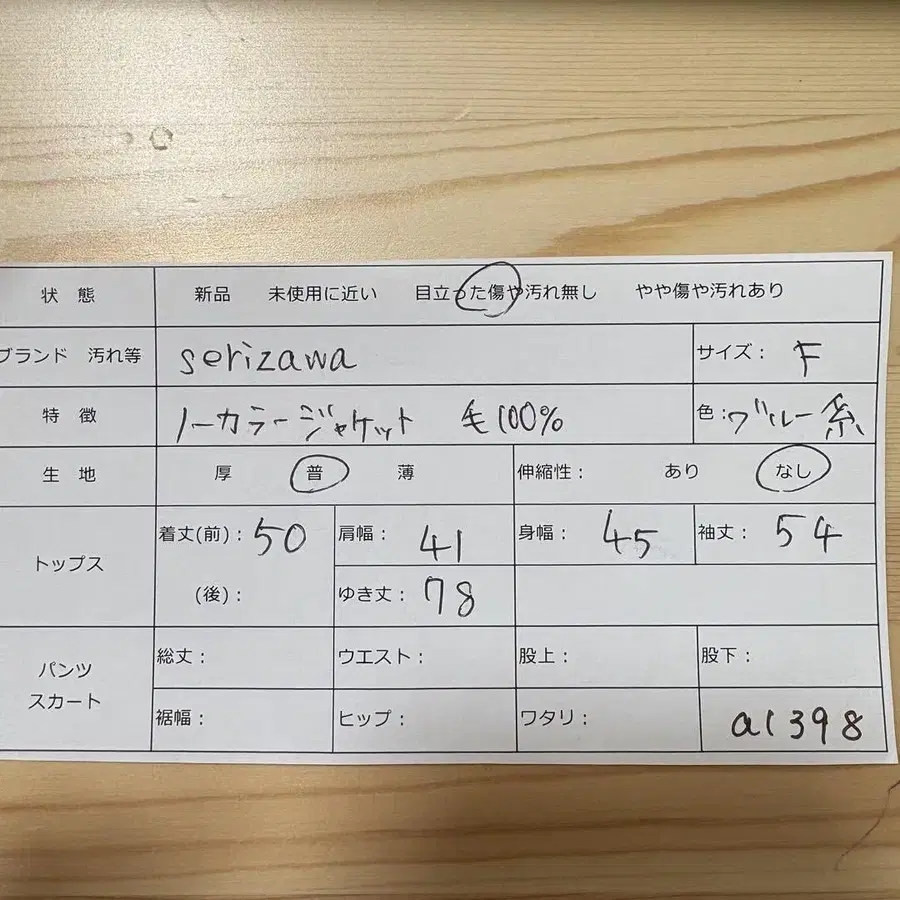 状 態 新品 未使用に近い 目立った傷や汚れ無し やや傷や汚れあり
ブランド 汚れ等 serizawa サイズ: F
特 徴 ノーカラージャケット 毛100% 色:ブルー系
生 地 厚 普 薄 伸縮性: あり なし
トップス 着丈(前): 50 肩幅: 41 身幅: 45 袖丈: 54
(後): ゆき丈: 78
パンツ スカート 総丈: ウエスト: 股上: 股下:
裾幅: ヒップ: ワタリ: a1398